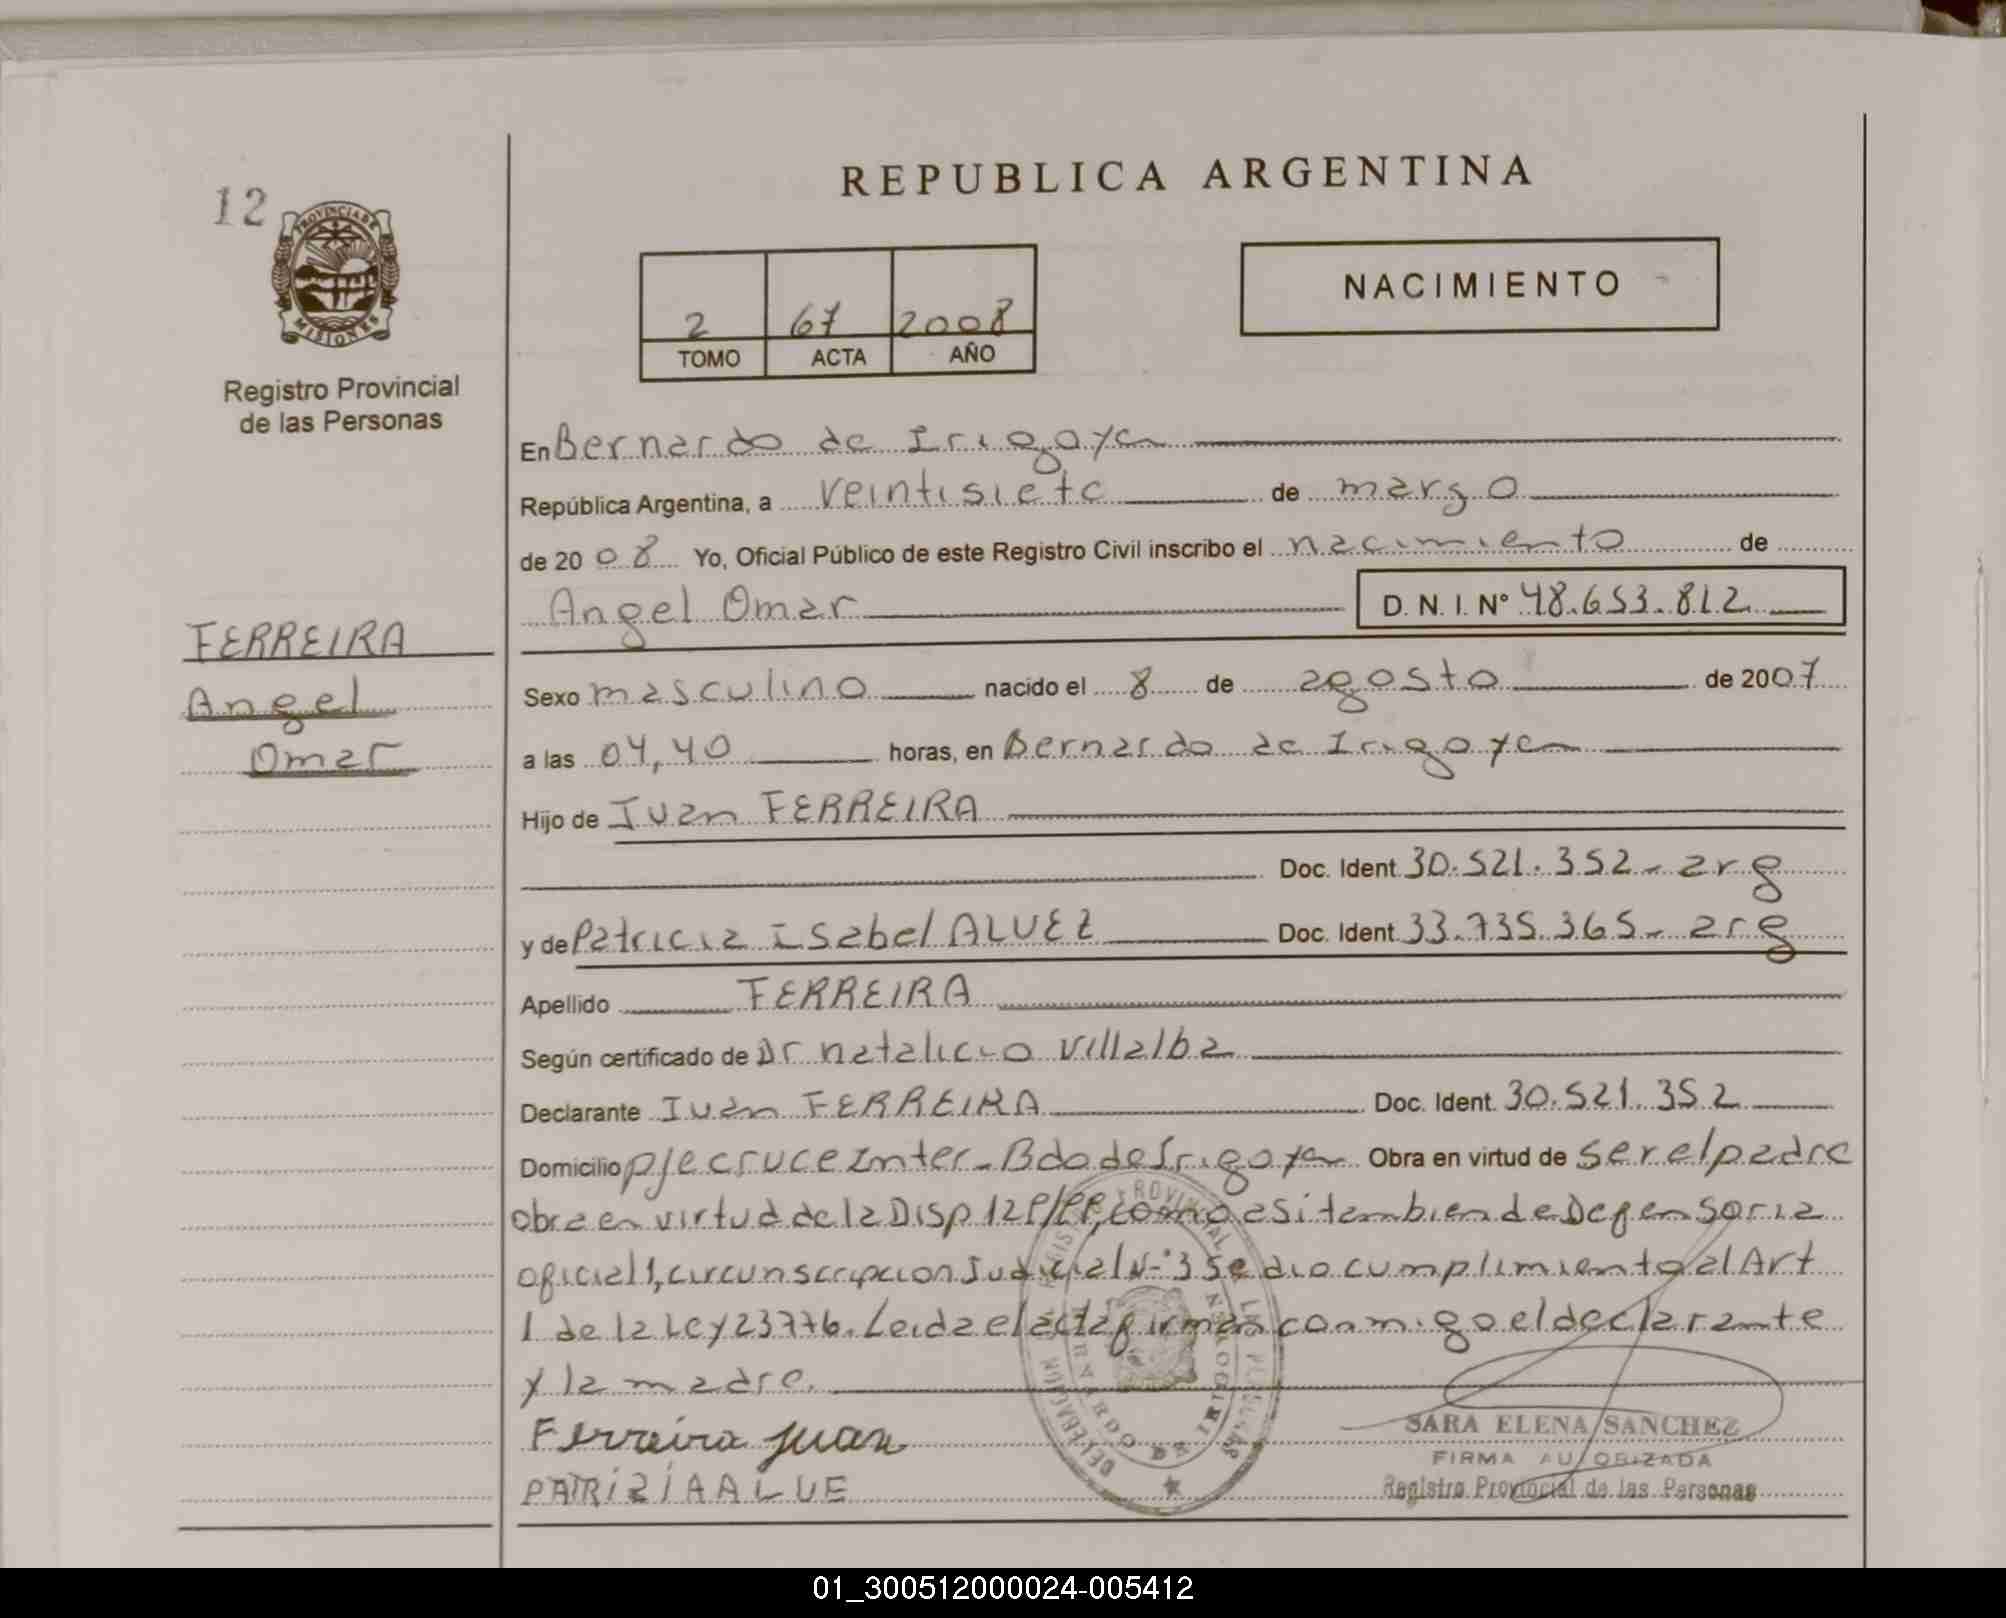 REPUBLICA ARGENTINA
12
PROVINCIA DE
MISIONES
Registro Provincial
de las Personas
2 67 2008
TOMO ACTA AÑO
NACIMIENTO
En Bernardo de Irigoyen
República Argentina, a veintisiete de marzo
de 2008 Yo, Oficial Público de este Registro Civil inscribo el nacimiento de
Angel Omar D. N. I. N° 48.653.812
FERREIRA
Angel
Omar
Sexo masculino nacido el 8 de agosto de 2007
a las 04,40 horas, en Bernardo de Irigoyen
Hijo de Juan FERREIRA
Doc. Ident. 30.521.352- arg
y de Patricia Isabel ALVEZ Doc. Ident. 33.735.365- arg
Apellido FERREIRA
Según certificado de Dr natalicio Villalba
Declarante Juan FERREIRA Doc. Ident. 30.521.352
Domicilio pje cruce Inter- Bdo de Irigoyen Obra en virtud de ser el padre
obra en virtud de la Disp 12P/PP, como asi tambien de Defensoria
oficial 1, circunscripcion Judicial N° 3 Se dio cumplimiento al Art
1 de la Ley 23776. Leida el acta firman conmigo el declarante
y la madre.
Ferreira juan
PATRiZiA ALUE
SARA ELENA SANCHEZ
FIRMA AUTORIZADA
Registro Provincial de las Personas
01_300512000024-005412